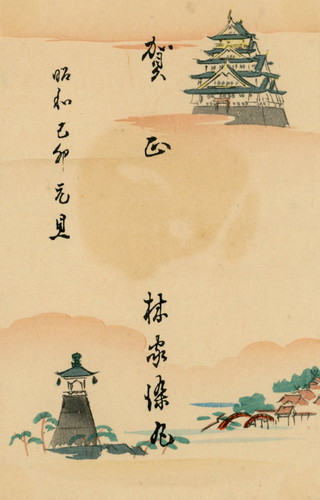 賀正
林家染丸
昭和己卯元旦